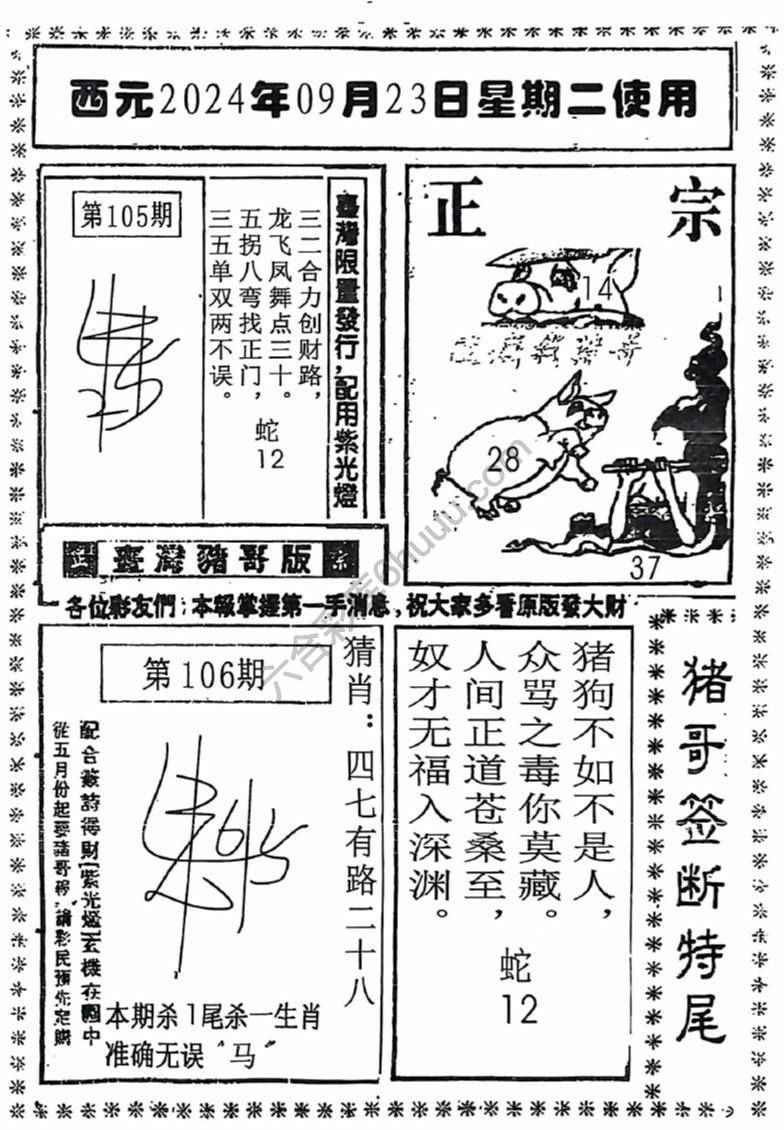 西元2024年09月23日星期二使用
第105期
三二合力创财路，
龙飞凤舞点三十。
五拐八弯找正门，
三五单双两不误。
蛇
12
臺灣限量發行，配用紫光燈
正宗
14
28
37
正 臺灣豬哥版 宗
各位彩友們：本報掌握第一手消息，祝大家多看原版發大財
第106期
猜肖：四七有路二十八
配合藏詩得財(紫光燈)玄機在圖中
從五月份起要豬哥報，請彩民預先定購
本期杀1尾杀一生肖
准确无误“马”
猪狗不如不是人，
众骂之毒你莫藏。
人间正道苍桑至，
奴才无福入深渊。
蛇
12
猪哥签断特尾
六合彩库6huuu.com